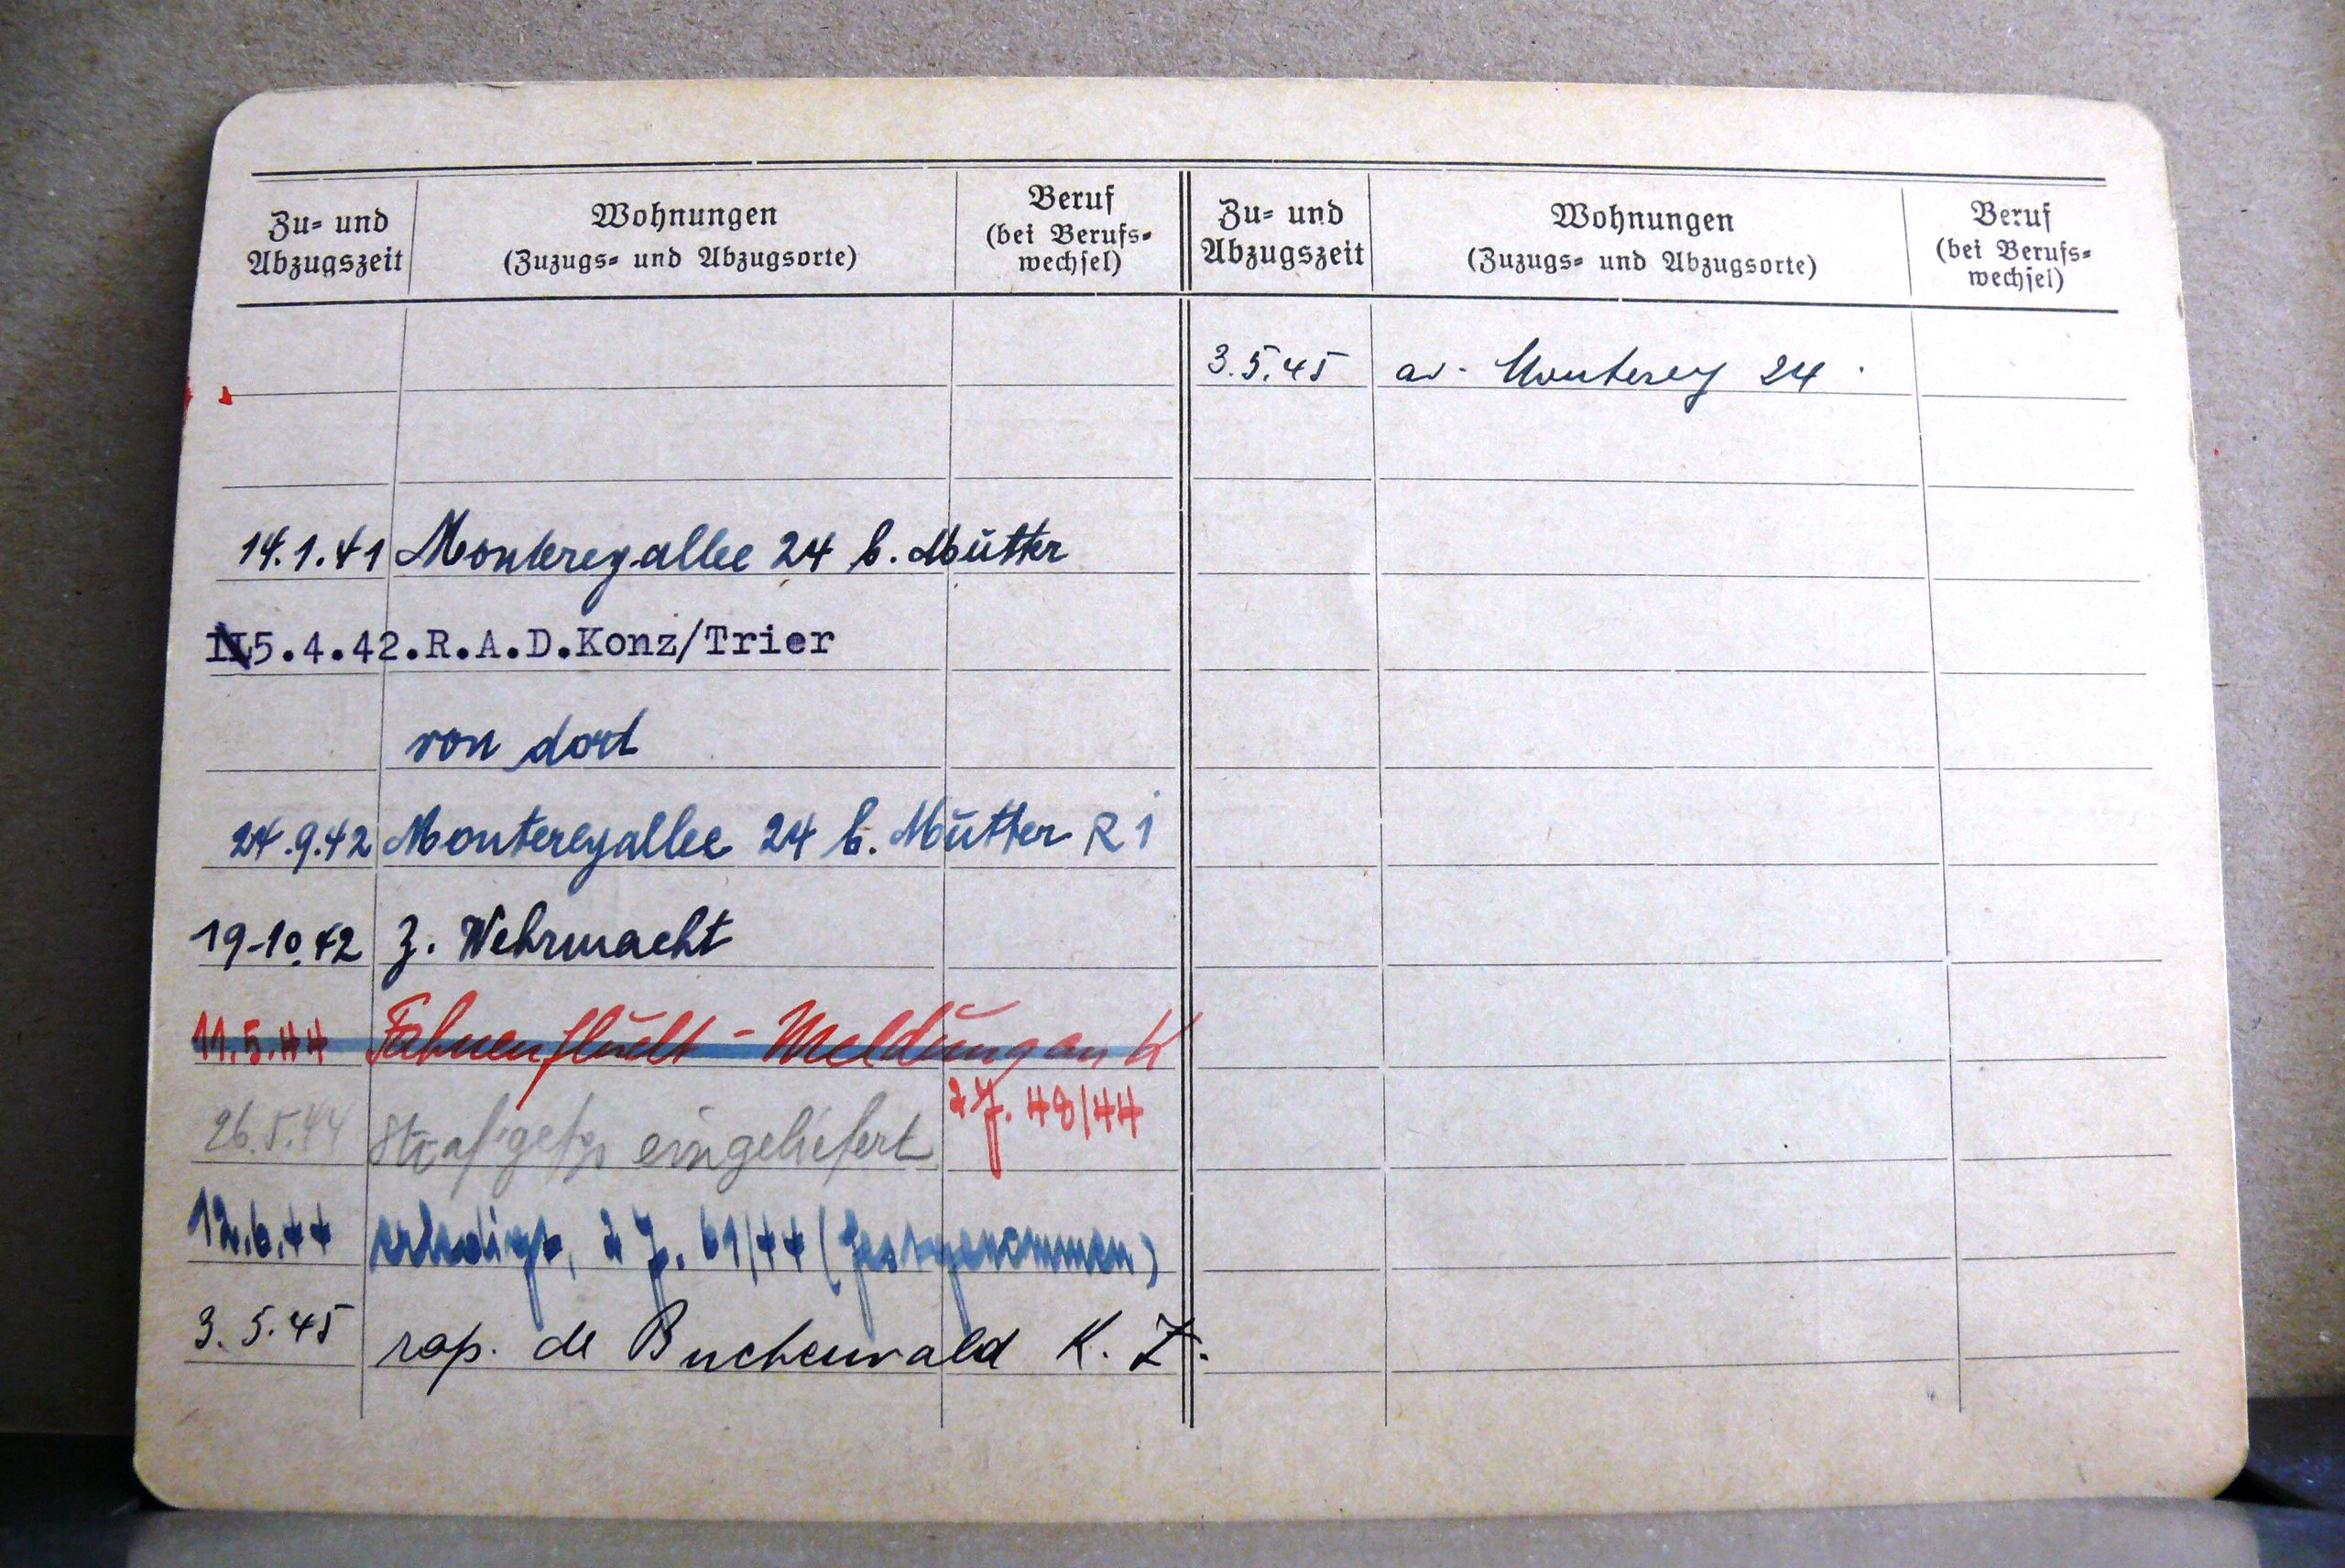 Zu- und
Abzugszeit
Wohnungen
(Zuzugs- und Abzugsorte)
Beruf
(bei Berufs-
wechsel)
14.1.41 Montereyallee 24 b. Mutter
5.4.42.R.A.D.Konz/Trier
von dort
24.9.42 Montereyallee 24 b. Mutter R 1
19-10.42 z. Wehrmacht
11.5.44 Fahnenflucht - Meldung an K
2 J. 48/44
26.5.44 eingeliefert
12.6.44 erledigt, 2 J. 61/44 (festgenommen)
3.5.45 rap. de Buchenwald K. Z.
Zu- und
Abzugszeit
Wohnungen
(Zuzugs- und Abzugsorte)
Beruf
(bei Berufs-
wechsel)
3.5.45 av. Monterey 24